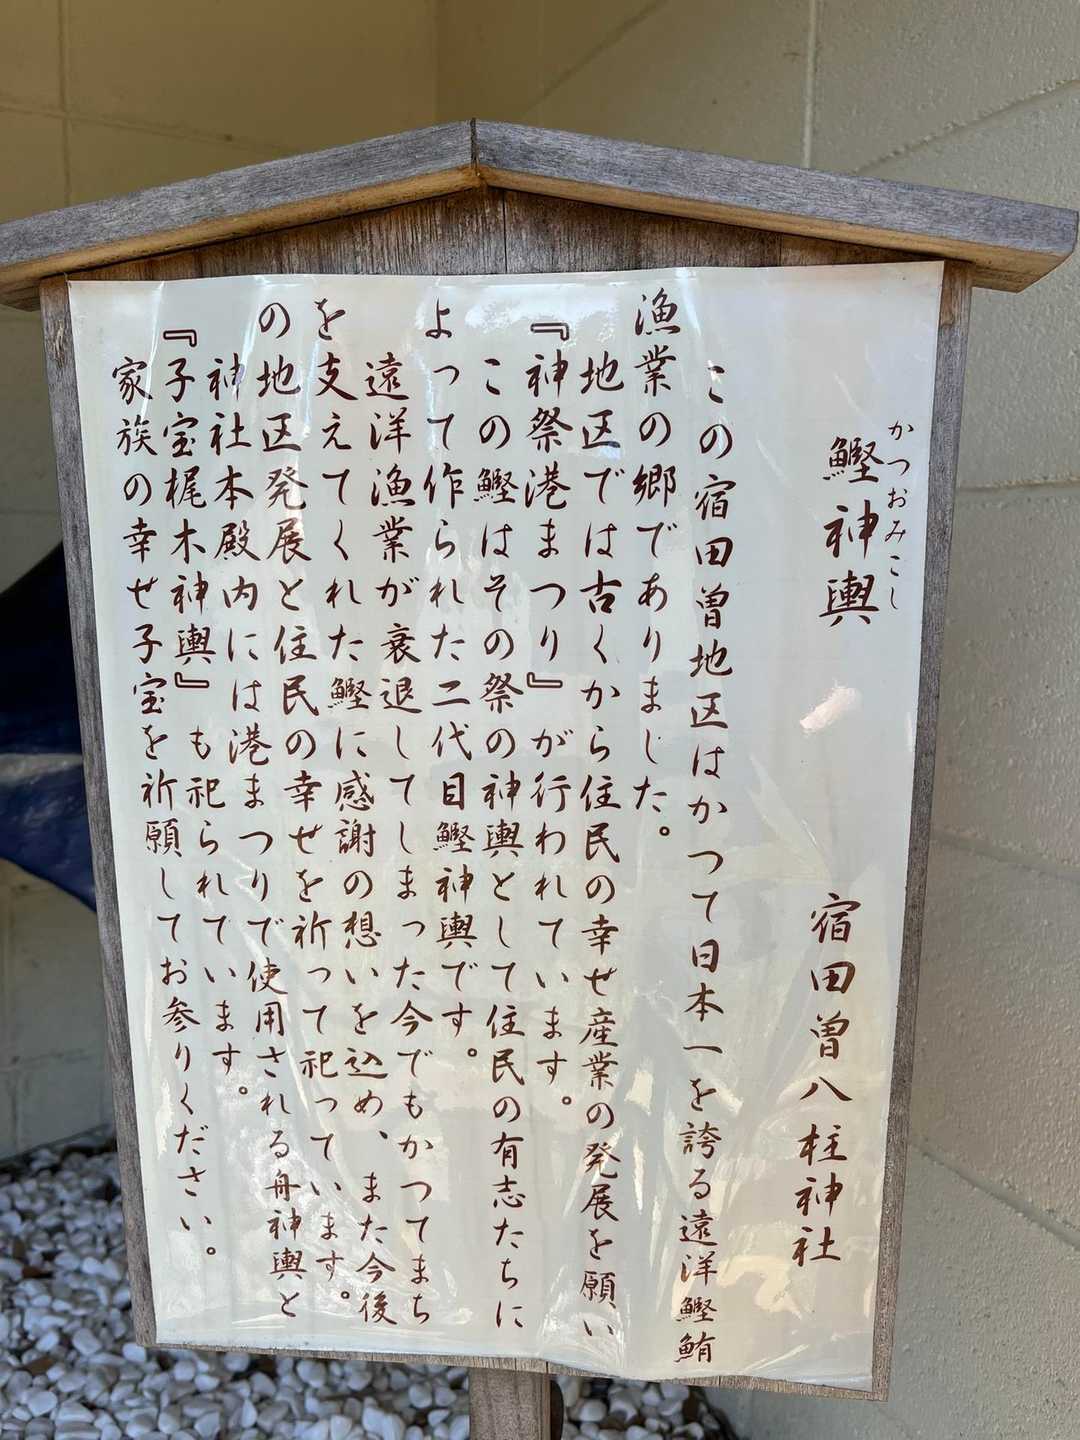 かつおみこし
鰹神輿
宿田曽八柱神社
この宿田曽地区はかつて日本一を誇る遠洋鰹鮪
漁業の郷でありました。
地区では古くから住民の幸せ産業の発展を願い
『神祭港まつり』が行われています。
この鰹はその祭の神輿として住民の有志たちに
よって作られた二代目鰹神輿です。
遠洋漁業が衰退してしまった今でもかつてまち
を支えてくれた鰹に感謝の想いを込め、また今後
の地区発展と住民の幸せを祈って祀っています。
神社本殿内には港まつりで使用される舟神輿と
『子宝梶木神輿』も祀られています。
家族の幸せ子宝を祈願してお参りください。